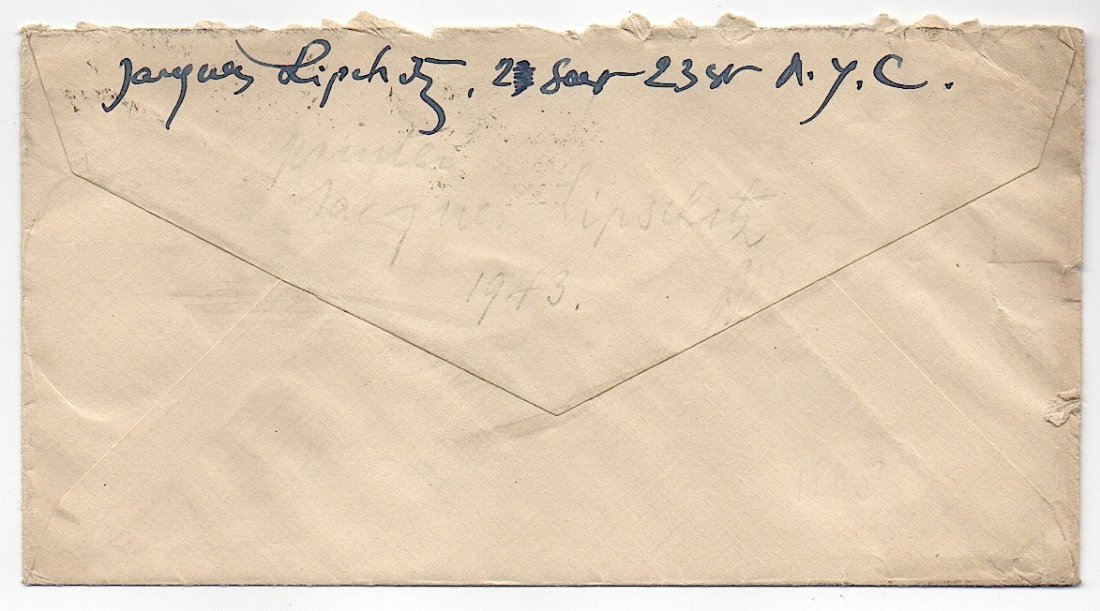 Jacques Lipchitz. 2 East 23 St N.Y.C.
printer
Jacques Lipschitz
1943.